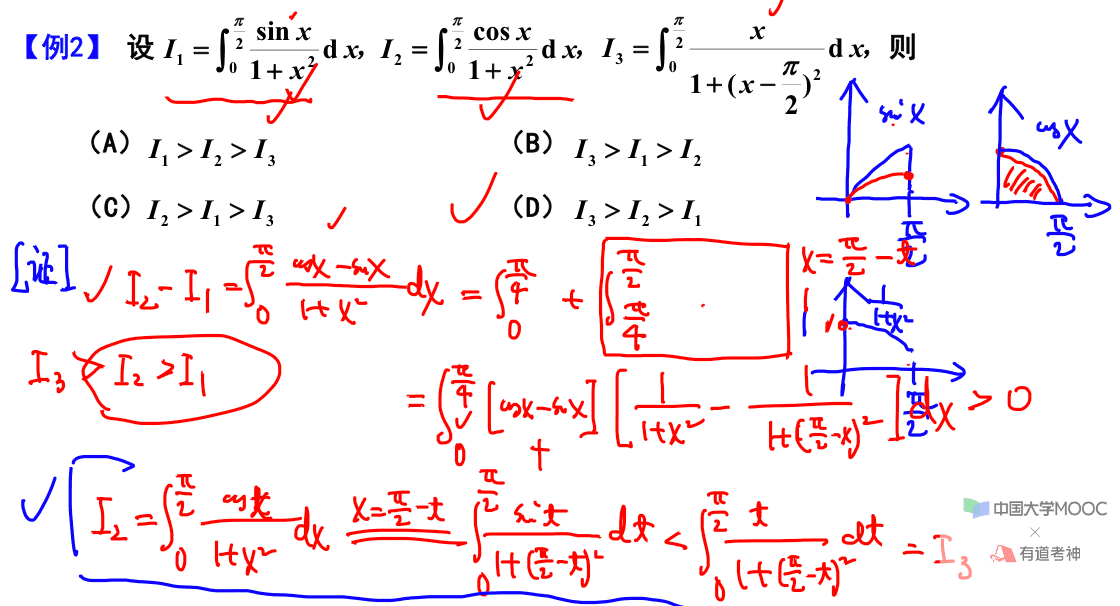 【例2】 设 I₁ = ∫₀^{π/2} sin x/(1+x²) d x, I₂ = ∫₀^{π/2} cos x/(1+x²) d x, I₃ = ∫₀^{π/2} x/(1+(x−π/2)²) d x, 则
(A) I₁ > I₂ > I₃ (B) I₃ > I₁ > I₂
(C) I₂ > I₁ > I₃ (D) I₃ > I₂ > I₁
sin x cos x
π/2 π/2
[证] I₂ − I₁ = ∫₀^{π/2} (cos x − sin x)/(1+x²) dx = ∫₀^{π/4} + ∫_{π/4}^{π/2} x = π/2 − t
1 1/(1+x²)
π/2
I₃ > I₂ > I₁
= ∫₀^{π/4} [cos x − sin x] [1/(1+x²) − 1/(1+(π/2−x)²)] dx > 0
+
I₂ = ∫₀^{π/2} cos x/(1+x²) dx x = π/2 − t ∫₀^{π/2} sin t/(1+(π/2−t)²) dt < ∫₀^{π/2} t/(1+(π/2−t)²) dt = I₃
中国大学MOOC
×
有道考神